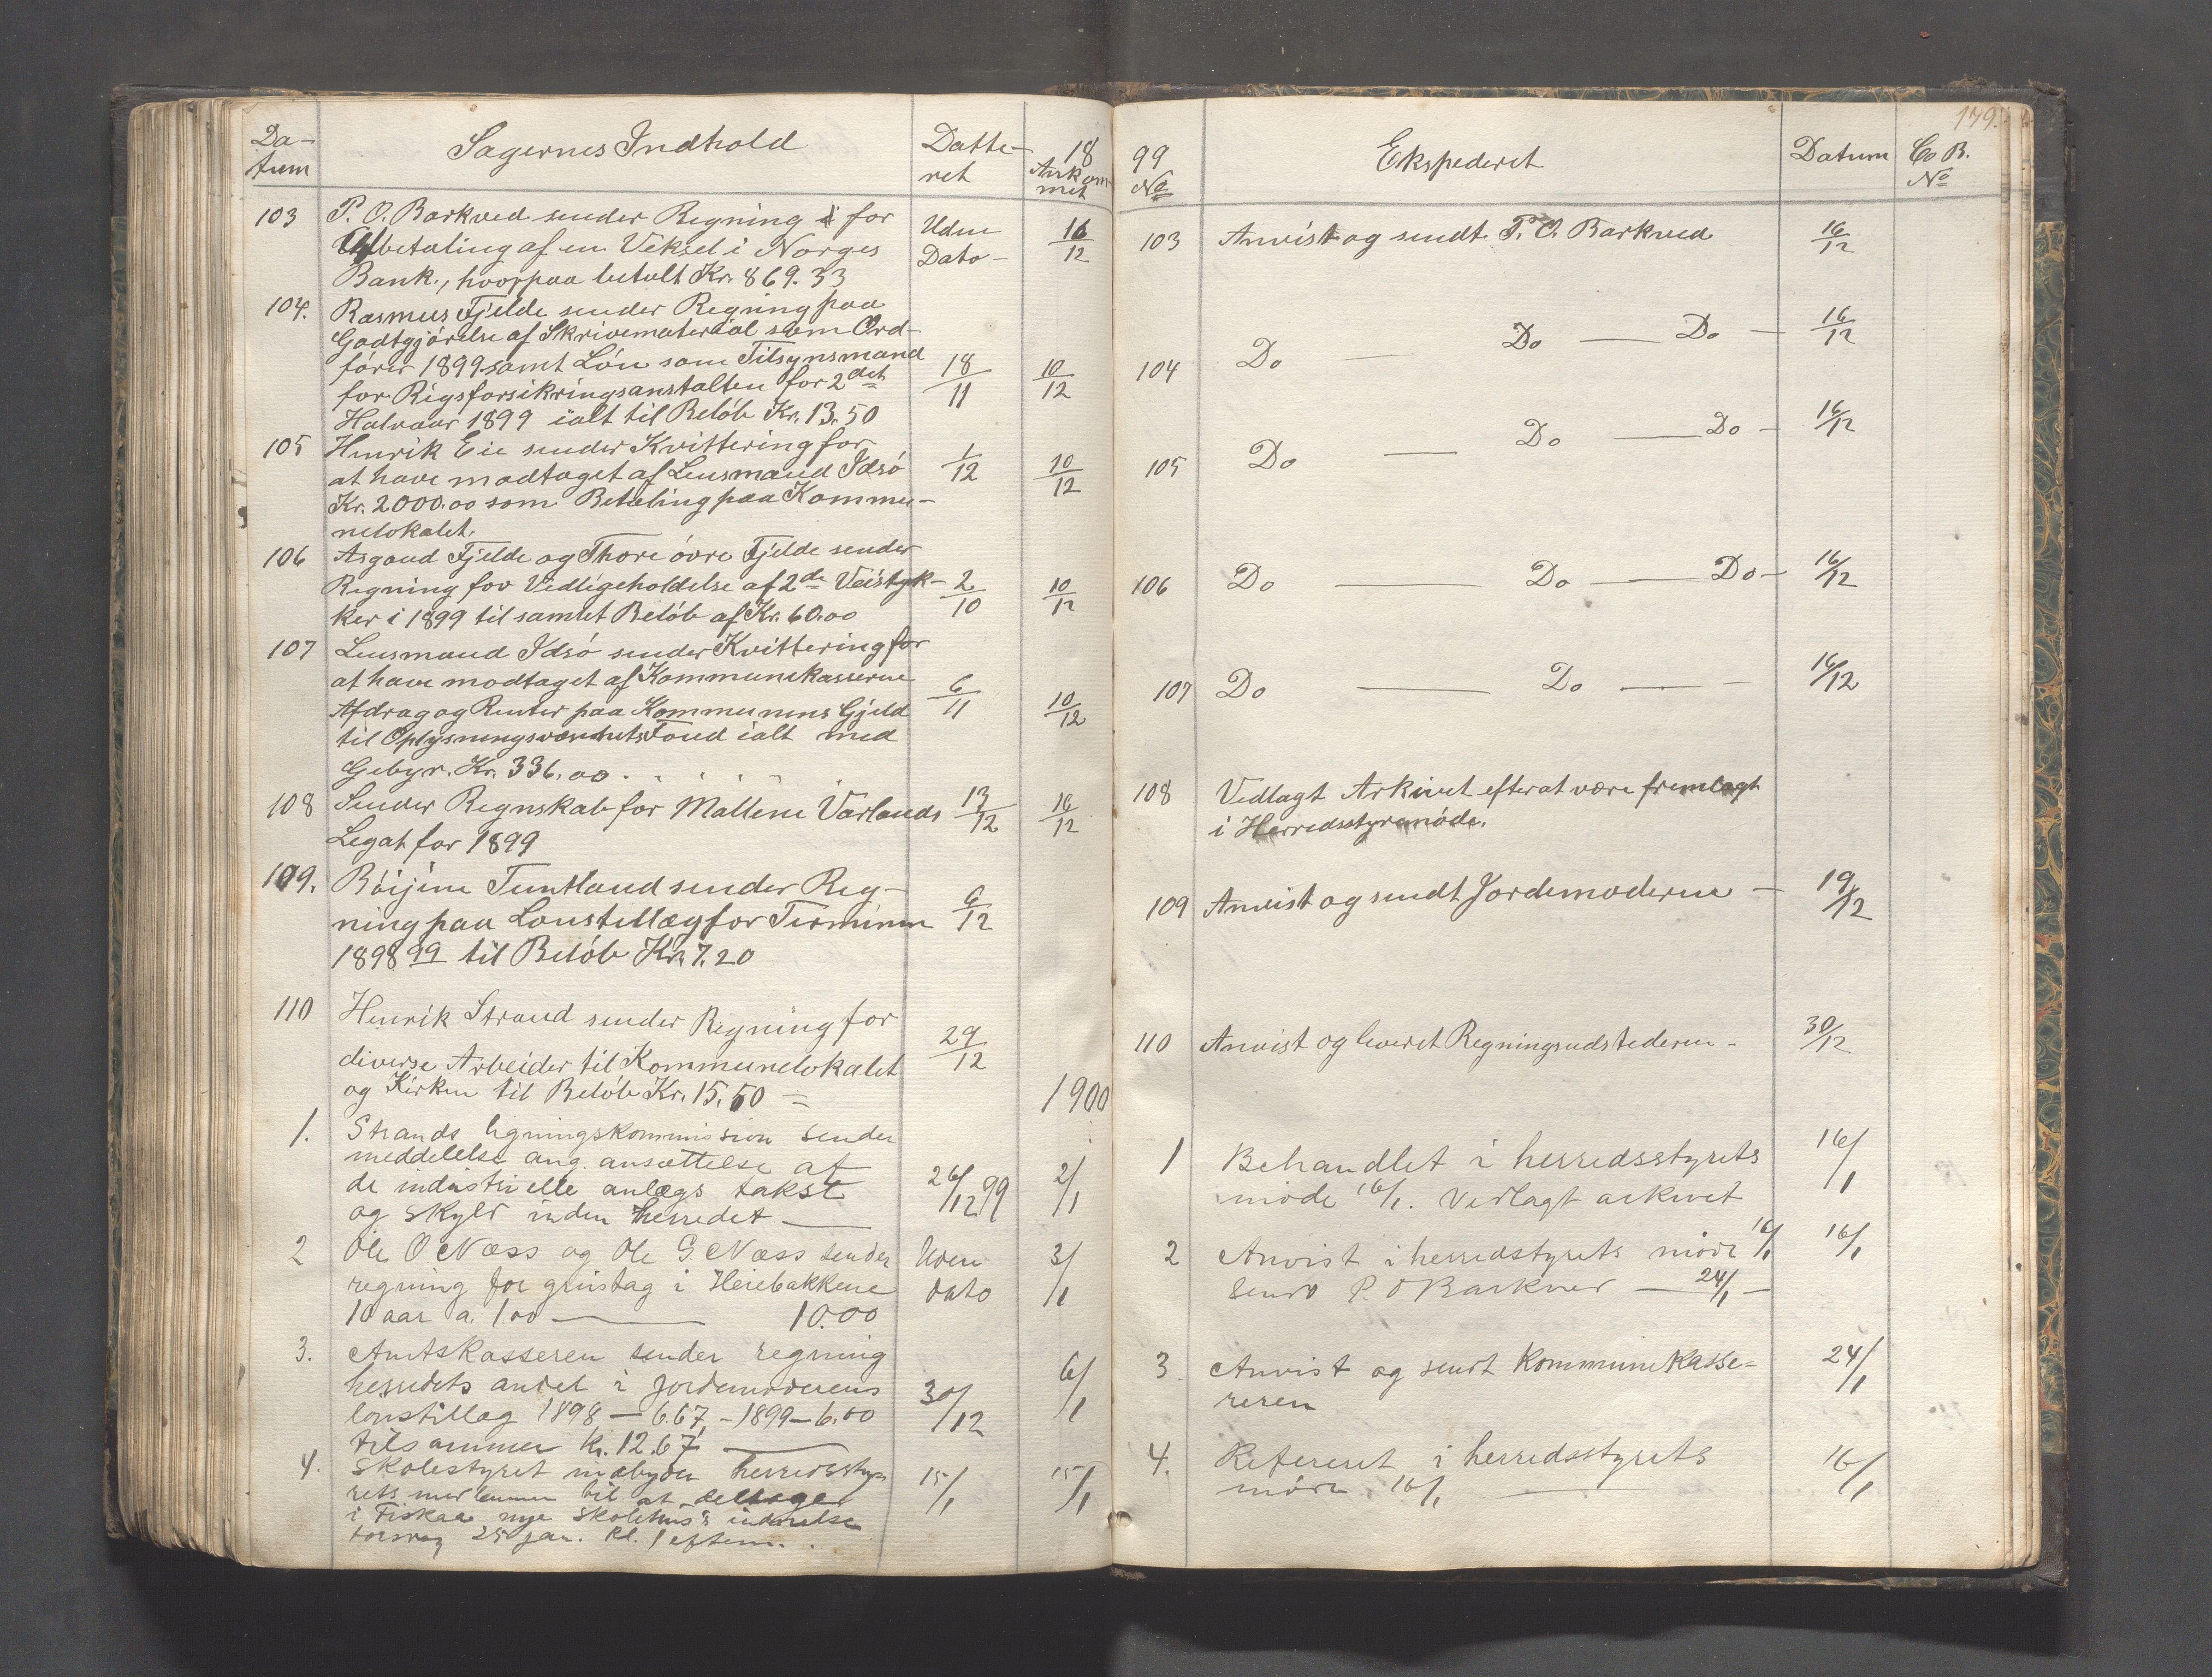 Da-
tum
Sagernes Indhold
Datte-
ret
18
Ankom
met
103
P. O. Barkved sender Regning for
Udbetaling af en Veksel i Norges
Bank., hvorpaa betalt Kr. 869.33
Uden
Dato-
16/12
104.
Rasmus Fjelde sender Regning paa
Godtgjörelse af Skrivemateriäl som Ord-
förer 1899 samt Lön som Tilsynsmand
for Rigsforsikringsanstalten for 2det
Halvaar 1899 ialt til Belöb Kr. 13.50
18/11
10/12
105
Henrik Eie sender Kvittering for
at have modtaget af Lensmand Idsö
Kr. 2000.00 som Betaling paa Kommu-
nelokalet.
1/12
10/12
106
Asgaud Fjelde og Thore övre Fjelde sender
Regning for Vedligeholdelse af 2de Veistyk-
ker i 1899 til samlet Belöb af Kr. 60.00
2/10
10/12
107
Lensmand Idsö sender Kvittering for
at have modtaget af Kommunekasseren
Afdrag og Renter paa Kommunens Gjeld
til Oplysningsvæsenets Fond ialt med
Gebyr. Kr. 336.00
6/11
10/12
108
Sender Regnskab for Mallene Varlands
Legat for 1899
13/12
16/12
109.
Böijine Tuntland sender Reg-
ning paa Lönstillæg for Terminen
1898 99 til Belöb Kr. 7.20
9/12
110
Henrik Strand sender Regning for
diverse Arbeider til Kommunelokalet
og Kirken til Belöb Kr. 15.50 =
29/12
1900
1.
Strands ligningskommission sender
meddelelse ang. ansættelse af
de industrielle anlægs takst
og skyld inden herredet —
26/12 99
2/1
2
Ole O. Næss og Ole G. Næss sender
regning for grustag i Heiebakkene
10 aar a. 1.00 — 10.00
Uden
dato
3/1
3.
Amtskasseren sender regning
herredets andel i jordemoderens
lønstillæg 1898 — 6.67 - 1899 — 6.00
tilsammen kr. 12.67 —
30/12
6/1
4.
Skolestyret indbyder herredssty-
rets medlemmer til at deltage
i Fiskaa nye skolehus's indvielse
torsdag 25 jan. kl. 1 efterm.
15/1
15/1
179.
99
No
Ekspederet
Datum
Co B.
No
103
Anvist og sendt P. O. Barkved
16/12
104
Do — Do — Do —
16/12
105
Do — Do — Do -
16/12
106
Do — Do — Do -
16/12
107
Do — Do — -
16/12
108
Vedlagt Arkivet efter at være fremlagt
i Herredsstyremöde.
109
Anvist og sendt Jordemoderen —
19/12
110
Anvist og leveret Regningsudstederen -
30/12
1
Behandlet i herredsstyrets
møde 16/1. Vedlagt arkivet
16/1
2
Anvist i herredstyrets møde 16/1
Sendt P. O Barkved — 24/1 —
16/1
3.
Anvist og sendt Kommunekasse-
reren
24/1
4.
Refereret i herredsstyrets
møde 16/1 —
16/1